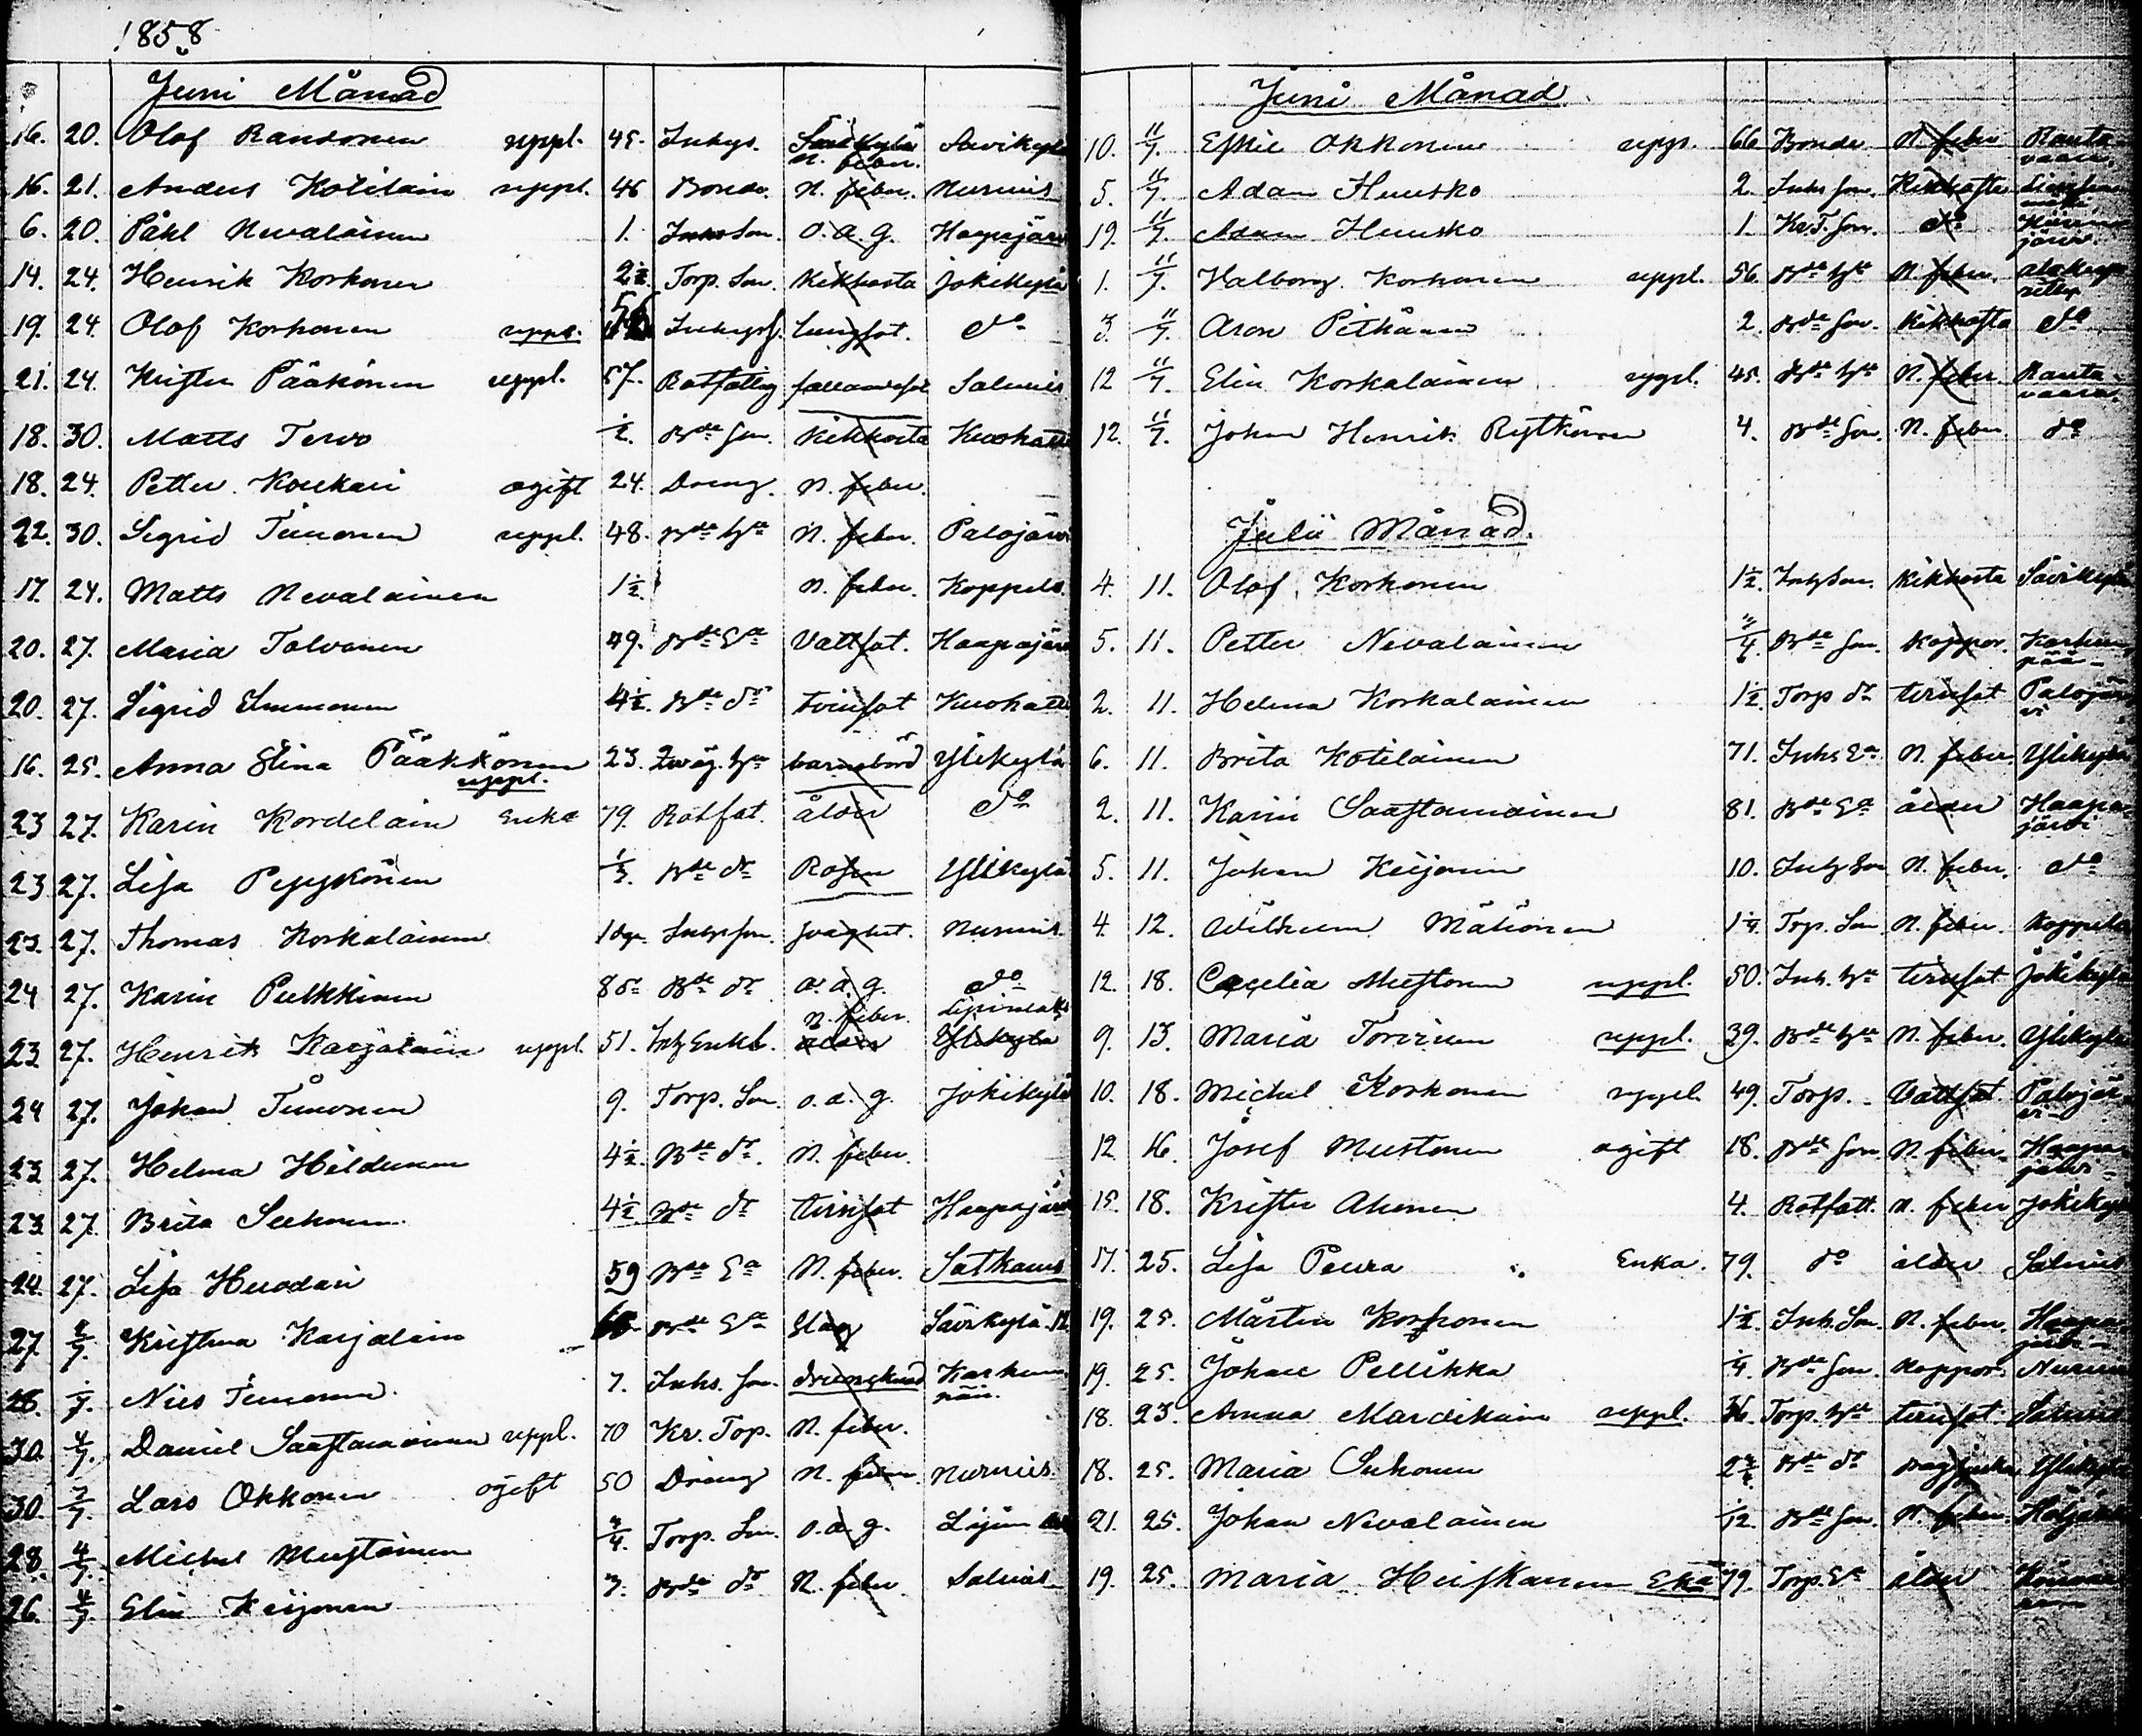 1858
Juni Månad
16. 20. Olof Randonen uppl. 45. Inhys. n. feber. Savikylä
16. 21. Anders Kotilain uppl. 46 Bonde. N. feber. Nurmis
6. 20. Påhl Nevalainen 1. Son. o. a. g. Haapajärvi
14. 24. Henrik Korhonen 2½. Torp. Son. Kikhosta Jokikylä
19. 24. Olof Korhonen uppl. 56 Inhys. Lungsot. do
21. 24. Krister Pääkönen uppl. 57. Rotfatting fallandesot Salmis
18. 30. Matts Tervo ½. Bde Son. Kikhosta Kuohatti
18. 24. Petter Koukari ogift 24. Dreng. N. feber.
22. 30. Sigrid Timonen uppl. 48. Bde Hu N. feber. Palojärvi
17. 24. Matts Nevalainen 1½. N. feber. Koppelo
20. 27. Maria Tolvanen 49. Bde Ea Vattsot. Haapajärvi
20. 27. Sigrid Immonen 4½. Bde dr tvinsot Kuohatti
16. 25. Anna Stina Pääkkönen uppl. 23. hu barnsbörd Ylikylä
23 27. Karin Kordelain Enka 79. Rotfat. ålder do
23 27. Lisa Pyykönen ⅓. Bde dr Rosen Ylikylä
23. 27. Thomas Korkalainen 1 dgr. Inhys son. Nurmis.
24 27. Karin Pulkkinen 85 Bde dr o. a. g. do
23. 27. Henrik Karjalain uppl. 51. Inhs Enkl. n. feber. Lipinlaks
24 27. Johan Timonen 9. Torp. Son. o. a. g. Jokikylä
23 27. Helena Hildunen 4½. Bde dr. N. feber.
23. 27. Brita Suhonen 4½ Bde dr tvinsot Haapajärvi
24. 27. Lisa Huodari 59 Bde Ea N. feber. Sotkamo
27. Kristina Karjalain Bde Ea Slag Savikylä
28. Nils Timonen. 7. Inhs. son. drunknad Karhunpää.
30. 4/7. Daniel Saastamoinen uppl. 70 Kr. Torp. N. feber.
30. 7/7. Lars Okkonen ogift 50 Dräng N. feber. Nurmis.
28. 4/7. Michel Mustoinen ¾. Torp. Son. o. a. g.
26. 4/7. Elin Keijonen 7. Bde dr N. feber Salmis
Juni Månad
10. 11/7. Eskil Okkonen uppl. 66 Bonde N. feber Rautavaara.
5. 11/7. Adam Huusko 2. Inhs son. Kikhosta
19. 11/7. Adam Huusko 1. Kr. T. Son. do
1. 11/7. Valborg Korhonen uppl. 56. Bde Hu N. feber.
3. 11/7. Aron Pitkänen 2. Bde Son. Kikhosta do
12 11/7. Elin Korkalainen uppl. 45. Bde Hu N. feber. Rautavaara.
12. 11/7. Johan Henrik Rytkönen 4. Bde Son. N. feber. do
Julii Månad.
4. 11. Olof Korhonen 1½. Inhs Son. Kikhosta Savikylä
5. 11. Petter Nevalainen ¾. Bde Son. Koppor. Karhunpää
2. 11. Helena Korkalainen 1½. Torp dr tvinsot Palojärvi
6. 11. Brita Kotilainen 71. Inhs Ea N. feber. Ylikylä
2. 11. Karin Saastamoinen 81. Bde Ea ålder Haapajärvi
5. 11. Johan Keijonen 10. Inhs Son N. feber. do
4. 12. Wilhem Mätiönen 1¼. Trp. Son N. feber. Koppelo
12. 18. Cecelia Mustonen uppl. 50. Inh. Hu tvinsot Jokikylä
9. 13. Maria Torvinen uppl. 39. Bde Hu N. feber. Ylikylä
10. 18. Michel Korhonen uppl. 49. Torp. Vattsot Palojärvi
12. 16. Josef Mustonen ogift 18. Bde Son. N. feber. Haapajärvi
15. 18. Krister Ahonen 4. Rotfatt. N. feber Jokikylä
17. 25. Lisa Peura Enka. 79. do ålder Salmis
19. 25. Mårten Korhonen 1½. Inh. Son. N. feber. Haapajärvi
19. 25. Johan Pellikka ¼. Bde Son. Koppor. Nurmis
18. 23. Anna Mardikain uppl. 36. Torp. Hu tvinsot Salmis
18. 25. Maria Suhonen Bde dr Ylikylä
21. 25. Johan Nevalainen 1/12. Bde Son. N. feber.
19. 25. Maria Heiskanen Eka 79. Torp. Ea ålder